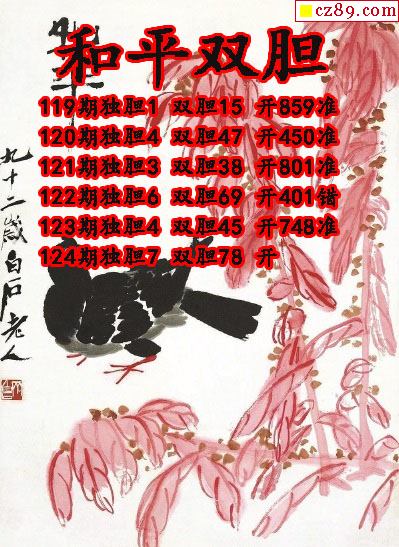 cz89.com
和平双胆
119期独胆1 双胆15 开859准
120期独胆4 双胆47 开450准
121期独胆3 双胆38 开801准
122期独胆6 双胆69 开401错
123期独胆4 双胆45 开748准
124期独胆7 双胆78 开
九十二岁白石老人